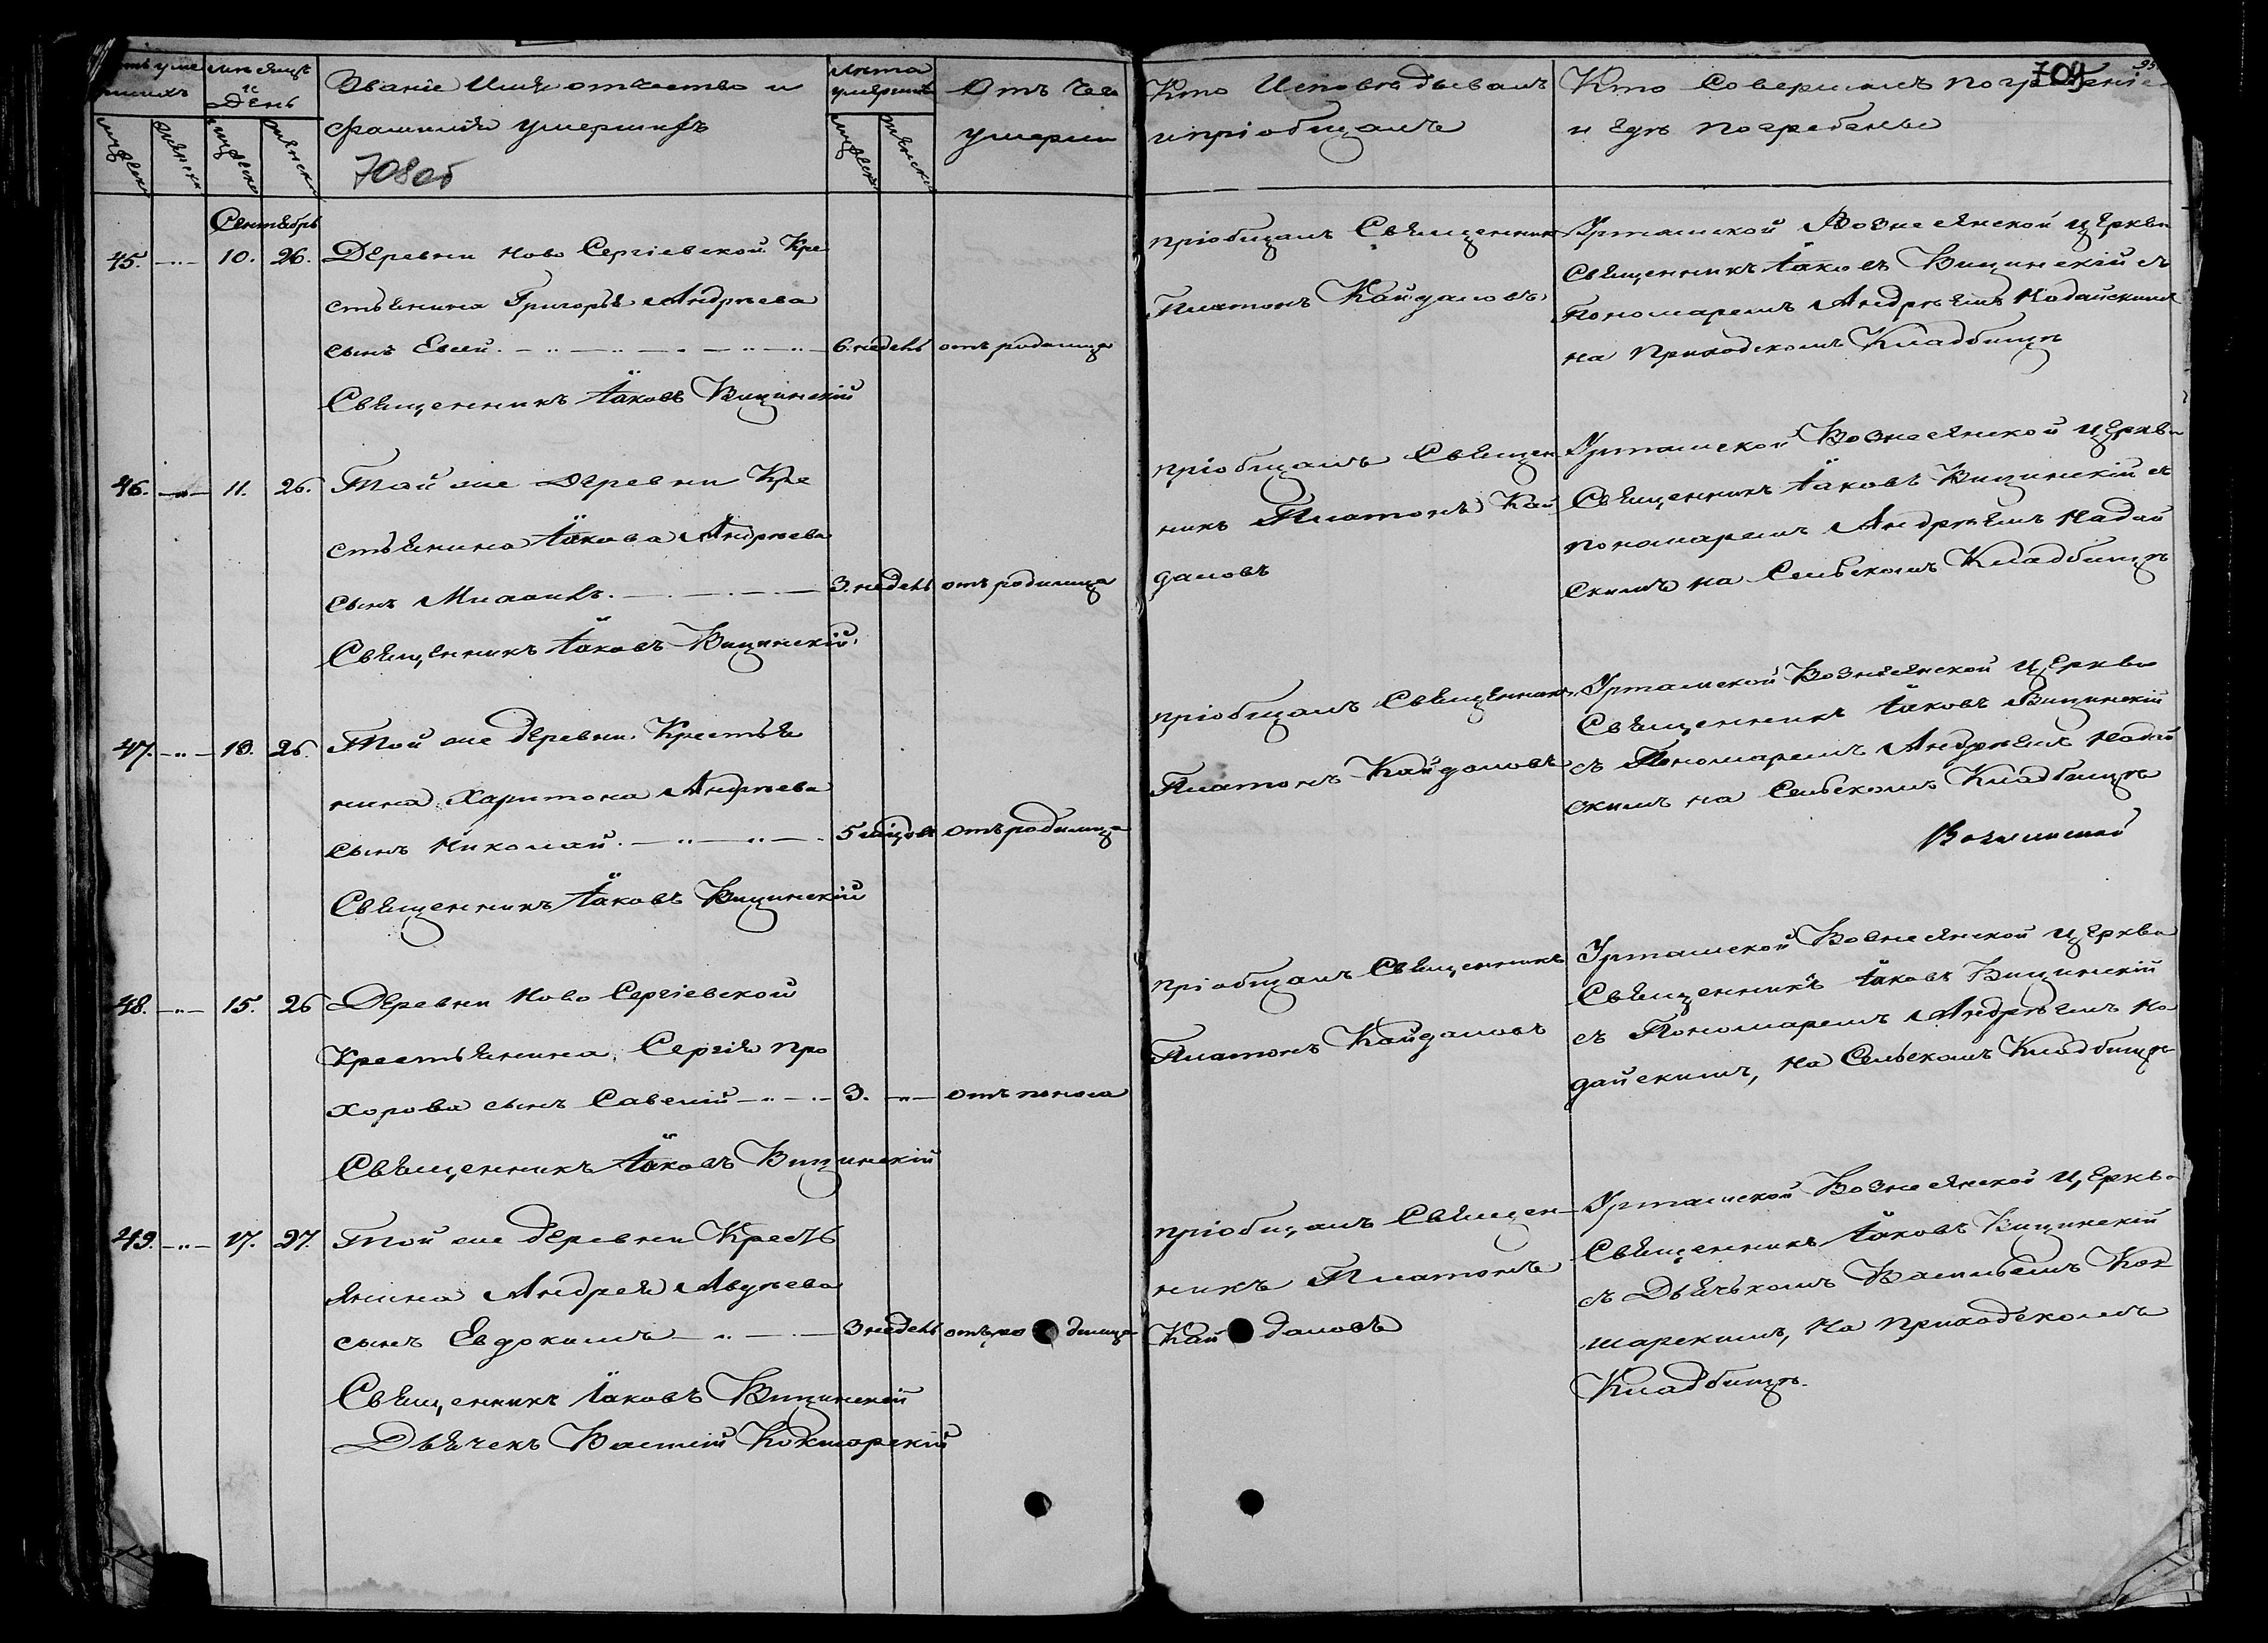 Мѣсяцъ
и
День
Званіе Имя отчество и
фамилія умершихъ
708об
Лѣта
умершихъ
Отъ чего
умерли
Кто Исповѣдывалъ
и пріобщалъ
Кто Совершалъ погребеніе
и гдѣ погребены
709
95
Сентябрь
45. —"— 10. 26. Деревни Ново Сергіевской Кре
стьянина Григорья Андрѣева
сынъ Евсей. 6. недель отъ родимца
Священникъ Іаковъ Вицинскій
пріобщалъ Священникъ
Платонъ Кайдаловъ
Урташской Вознесянской церкви
Священникъ Іаковъ Вицинскій съ
Пономаремъ Андрѣемъ Надайскимъ
на Приходскомъ Кладбищѣ
46. —"— 11. 26. Той же Деревни Кре
стьянина Іакова Андрѣева
сынъ Михаилъ. 3. недель отъ родимца
Священникъ Іаковъ Вицинскій
пріобщалъ Священ
никъ Платонъ Кай
даловъ
Урташской Вознесянской церкви
Священникъ Іаковъ Вицинскій съ
пономаремъ Андрѣемъ Надай
скимъ на Сельскомъ Кладбищѣ
47. —"— 13. 26. Той же деревни Крестья
нина Харитона Андрѣева
сынъ Николай. 5 мѣсяцовъ отъ родимца
Священникъ Іаковъ Вицинскій
пріобщалъ Священникъ
Платонъ Кайдаловъ
Урташской Вознесянской церкви
Священникъ Іаковъ Вицинскій
съ Пономаремъ Андрѣемъ Надай
скимъ на Сельскомъ Кладбищѣ
48. —"— 15. 26 Деревни Ново Сергіевской
Крестьянина Сергія Про
хорова сынъ Савелій 3. —"— отъ поноса
Священникъ Іаковъ Вицинскій
пріобщалъ Священникъ
Платонъ Кайдаловъ
Урташской Вознесянской церкви
Священникъ Іаковъ Вицинскій
съ Пономаремъ Андрѣемъ На
дайскимъ, на Сельскомъ Кладбищѣ
49. —"— 17. 27. Той же деревни Кресть
янина Андрея Авдѣева
сынъ Евдокимъ 3 недель отъ родимца
Священникъ Іаковъ Вицинскій
Дьячекъ Василій Кокшарскій
пріобщалъ Священ
никъ Платонъ
Кайдаловъ
Урташской Вознесянской церкви
Священникъ Іаковъ Вицинскій
съ Дьячькомъ Васильемъ Кок
шарскимъ, на Приходскомъ
Кладбищѣ.